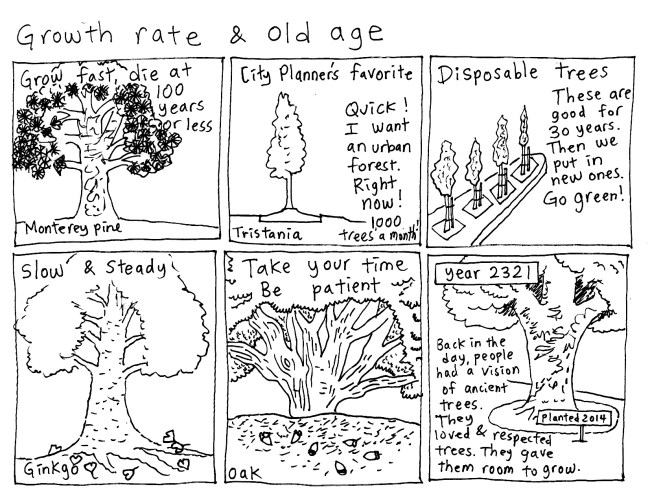 Growth rate & old age
Grow fast, die at
100
years
or less
Monterey pine
City Planner's favorite
Quick!
I want
an urban
forest.
Right
now!
1000
trees a month!
Tristania
Disposable trees
These are
good for
30 years.
Then we
put in
new ones.
Go green!
Slow & Steady
Ginkgo
Take your time
Be patient
oak
year 2321
Back in the
day, people
had a vision
of ancient
trees.
They
loved & respected
trees. They gave
them room to grow.
Planted 2014